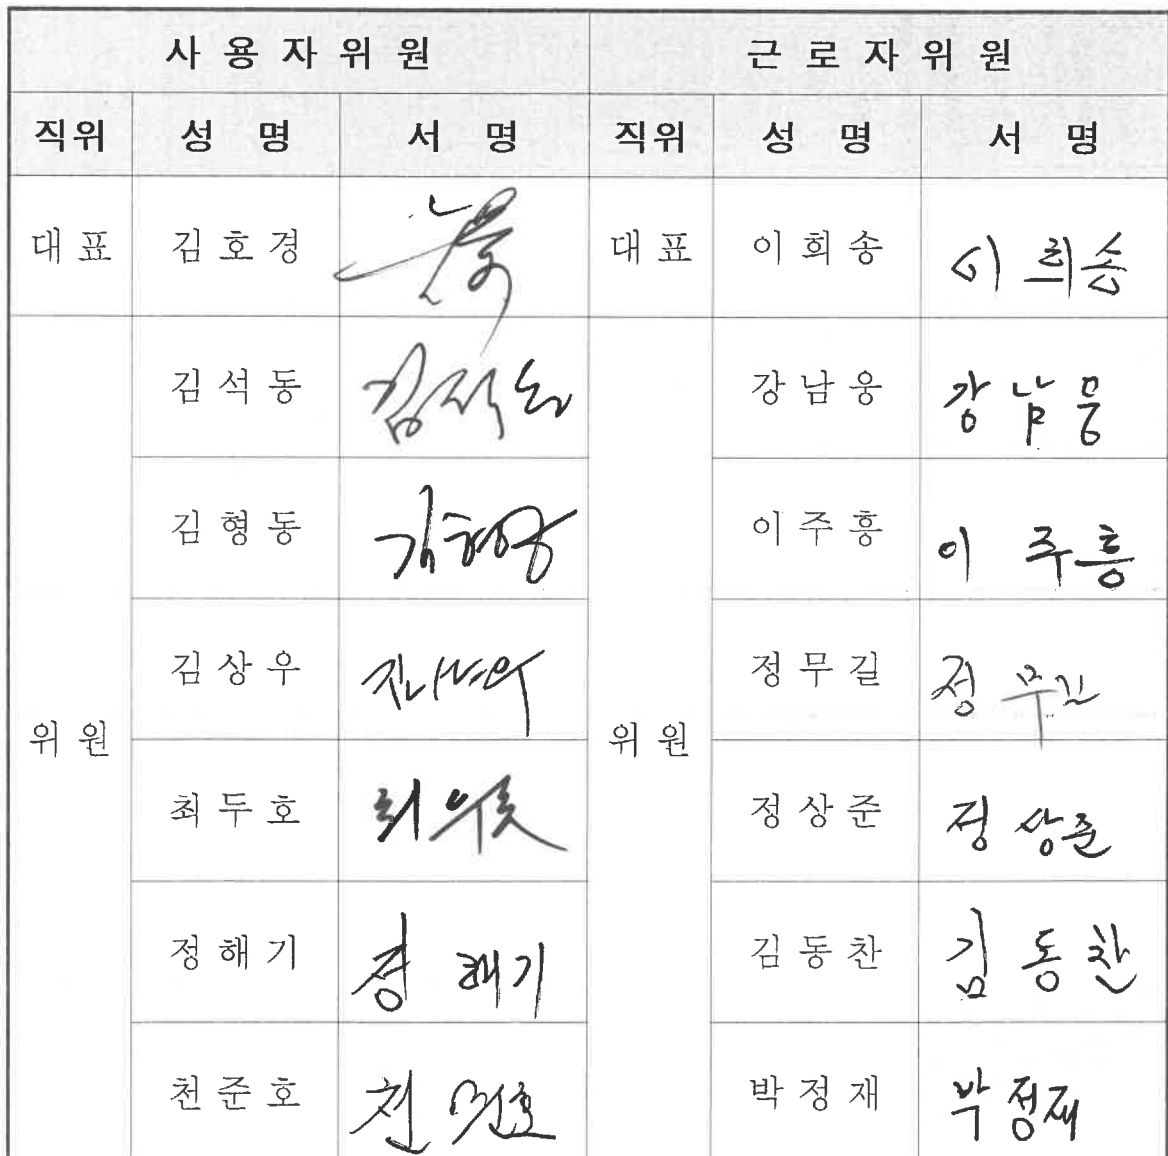 사용자위원 근로자위원
직위 성 명 서 명 직위 성 명 서 명
대표 김호경 대표 이희송 이희송
김석동 김석동 강남웅 강남웅
김형동 김형동 이주흥 이 주흥
김상우 김상우 정무길 정무길
위원 위원
최두호 정상준 정상준
정해기 정해기 김동찬 김동찬
천준호 천준호 박정재 박정재